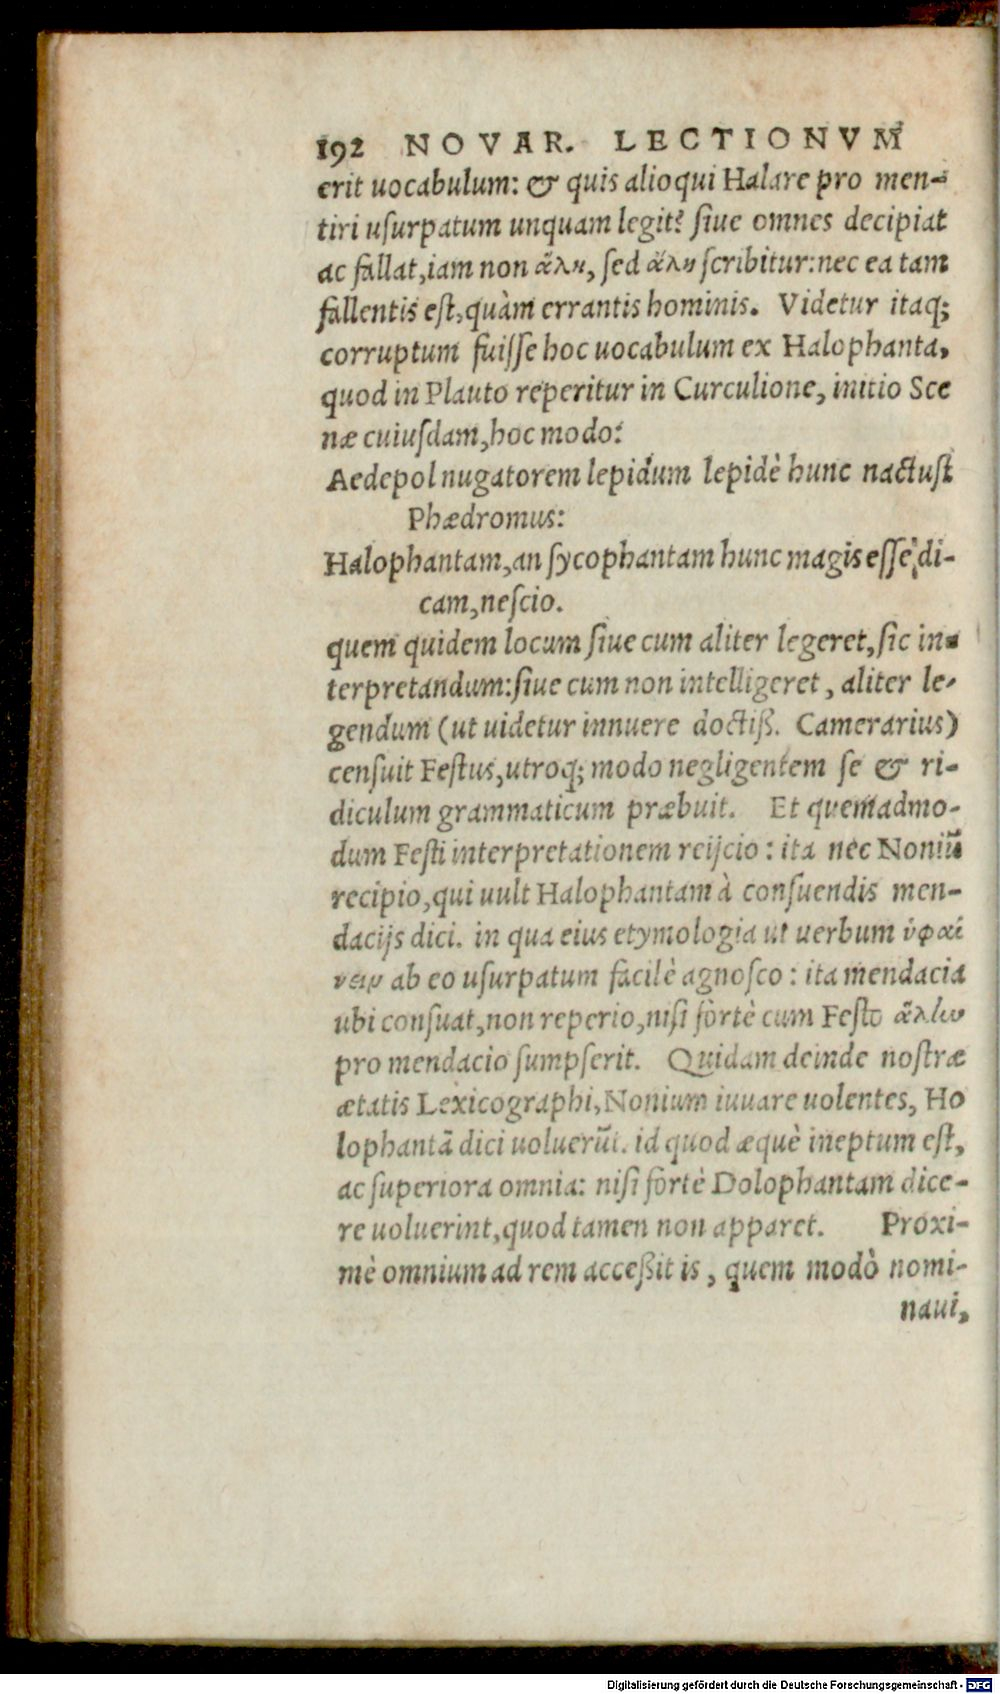 192 NOVAR. LECTIONVM
erit uocabulum: & quis alioqui Halare pro men-
tiri uſurpatum unquam legit? ſiue omnes decipiat
ac fallat, iam non ἅλη, ſed ἄλη ſcribitur: nec ea tam
fallentis eſt, quàm errantis hominis. Videtur itaq;
corruptum fuiſſe hoc uocabulum ex Halophanta,
quod in Plauto reperitur in Curculione, initio Sce
næ cuiuſdam, hoc modo:
Aedepol nugatorem lepidum lepidè hunc nactuſt
Phædromus:
Halophantam, an ſycophantam hunc magis eſſe di-
cam, neſcio.
quem quidem locum ſiue cum aliter legeret, ſic in-
terpretandum: ſiue cum non intelligeret, aliter le-
gendum (ut uidetur innuere doctiß. Camerarius)
cenſuit Feſtus, utroq; modo negligentem ſe & ri-
diculum grammaticum præbuit. Et quemadmo-
dum Feſti interpretationem reijcio: ita nec Noniũ
recipio, qui uult Halophantam à conſuendis men-
dacijs dici. in qua eius etymologia ut uerbum ὑφαί
νειν ab eo uſurpatum facilè agnoſco: ita mendacia
ubi conſuat, non reperio, niſi fortè cum Feſto ἅλην
pro mendacio ſumpſerit. Quidam deinde noſtræ
ætatis Lexicographi, Nonium iuuare uolentes, Ho
lophantã dici uoluerũt. id quod æquè ineptum eſt,
ac ſuperiora omnia: niſi fortè Dolophantam dice-
re uoluerint, quod tamen non apparet. Proxi-
mè omnium ad rem acceßit is, quem modò nomi-
naui,
Digitalisierung gefördert durch die Deutsche Forschungsgemeinschaft - DFG